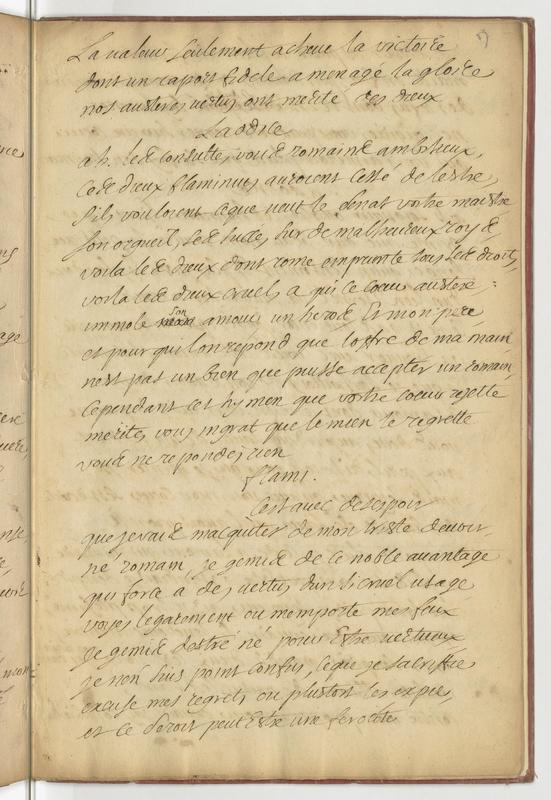 La valeur seulement acheve la victoire
dont un raport fidele a menagé la gloire
nos austeres vertus ont merité des dieux
Laodice
ah. led consultés, voud romaind ambitieux,
ced dieux flaminius auroient cessé de lestre,
sils vouloient ce que veut le senat vostre maistre
son orgueil, sed sur de malheureux royd
voila led dieux dont rome emprunte tous sed droits,
voila led dieux cruels a qui ce coeur austere :
immole son amour un herod Et mon pere
et pour qui lon repond que loffre de ma main
nest pas un bien que puisse accepter un romain,
cependant cet hymen que vostre coeur rejette
merités vous ingrat que le mien le regrette
voud ne repondés rien
flami.
Cest avec desespoir
que je vaid macquiter de mon triste devoir,
né romain, je gemid de ce noble avantage
qui force a des vertus dun si cruel usage
voyés legarement ou memporte mes feux
je gemid destre né pour Estre vertueux
je nen suis point confus, ce que je sacrifie
excuse mes regrets ou plustost les expie,
et ce seroit peut Estre une ferocité